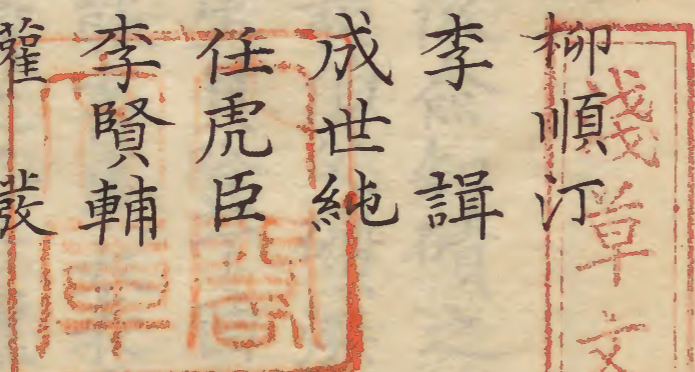 柳順汀
李諿
成世純
任虎臣
李賢輔
權發
淺草文